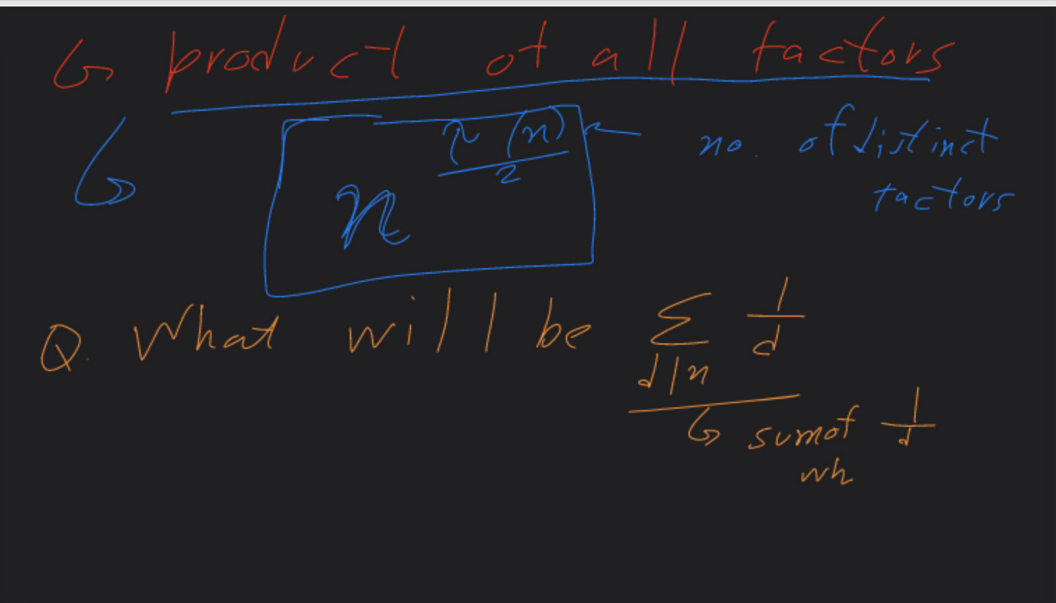 ↳ product of all factors
↳ n^(τ(n)/2) ← no. of distinct
factors
Q. What will be Σ_{d|n} 1/d
↳ sum of 1/d
wh